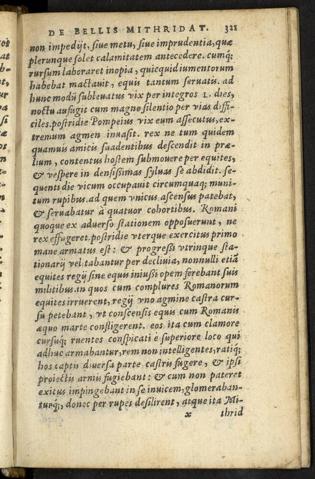 DE BELLIS MITHRIDAT. 321
non impedijt, siue metu, siue imprudentia, quæ
plerunque solet calamitatem antecedere. cumq;
rursum laboraret inopia, quicquid iumentorum
habebat mactauit, equis tantum seruatis. ad
hunc modũ subleuatus vix per integros L. dies,
noctu aufugit cum magno silentio per vias diffi-
ciles. postridie Pompeius vix eum assecutus, ex-
tremum agmen inuasit. rex ne tum quidem
quamuis amicis suadentibus descendit in præ-
lium, contentus hostem submouere per equites,
& vespere in densissimas syluas se abdidit. se-
quenti die vicum occupauit circumquaq; muni-
tum rupibus. ad quem vnicus ascensus patebat,
& seruabatur à quatuor cohortibus. Romani
quoque ex aduerso stationem opposuerunt, ne
rex effugeret. postridie vterque exercitus primo
mane armatus est: & progressi vtrinque sta-
tionarij velitabantur per decliuia, nonnulli etiã
equites regij sine equis iniussi opem ferebant suis
militibus. in quos cum complures Romanorum
equites irruerent, regij vno agmine castra cur-
su petebant, vt conscensis equis cum Romanis
æquo marte confligerent. eos ita cum clamore
cursuq; ruentes conspicati è superiore loco qui
adhuc armabantur, rem non intelligentes, ratiq;
hos captis diuersa parte castris fugere, & ipsi
proiectis armis fugiebant: & cum non pateret
exitus impingebant in se inuicem, glomeraban-
turq;, donec per rupes desilirent, atque ita Mi-
x thrid